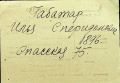 Габатар
Илья Спиридонович
1896
Спасская 75